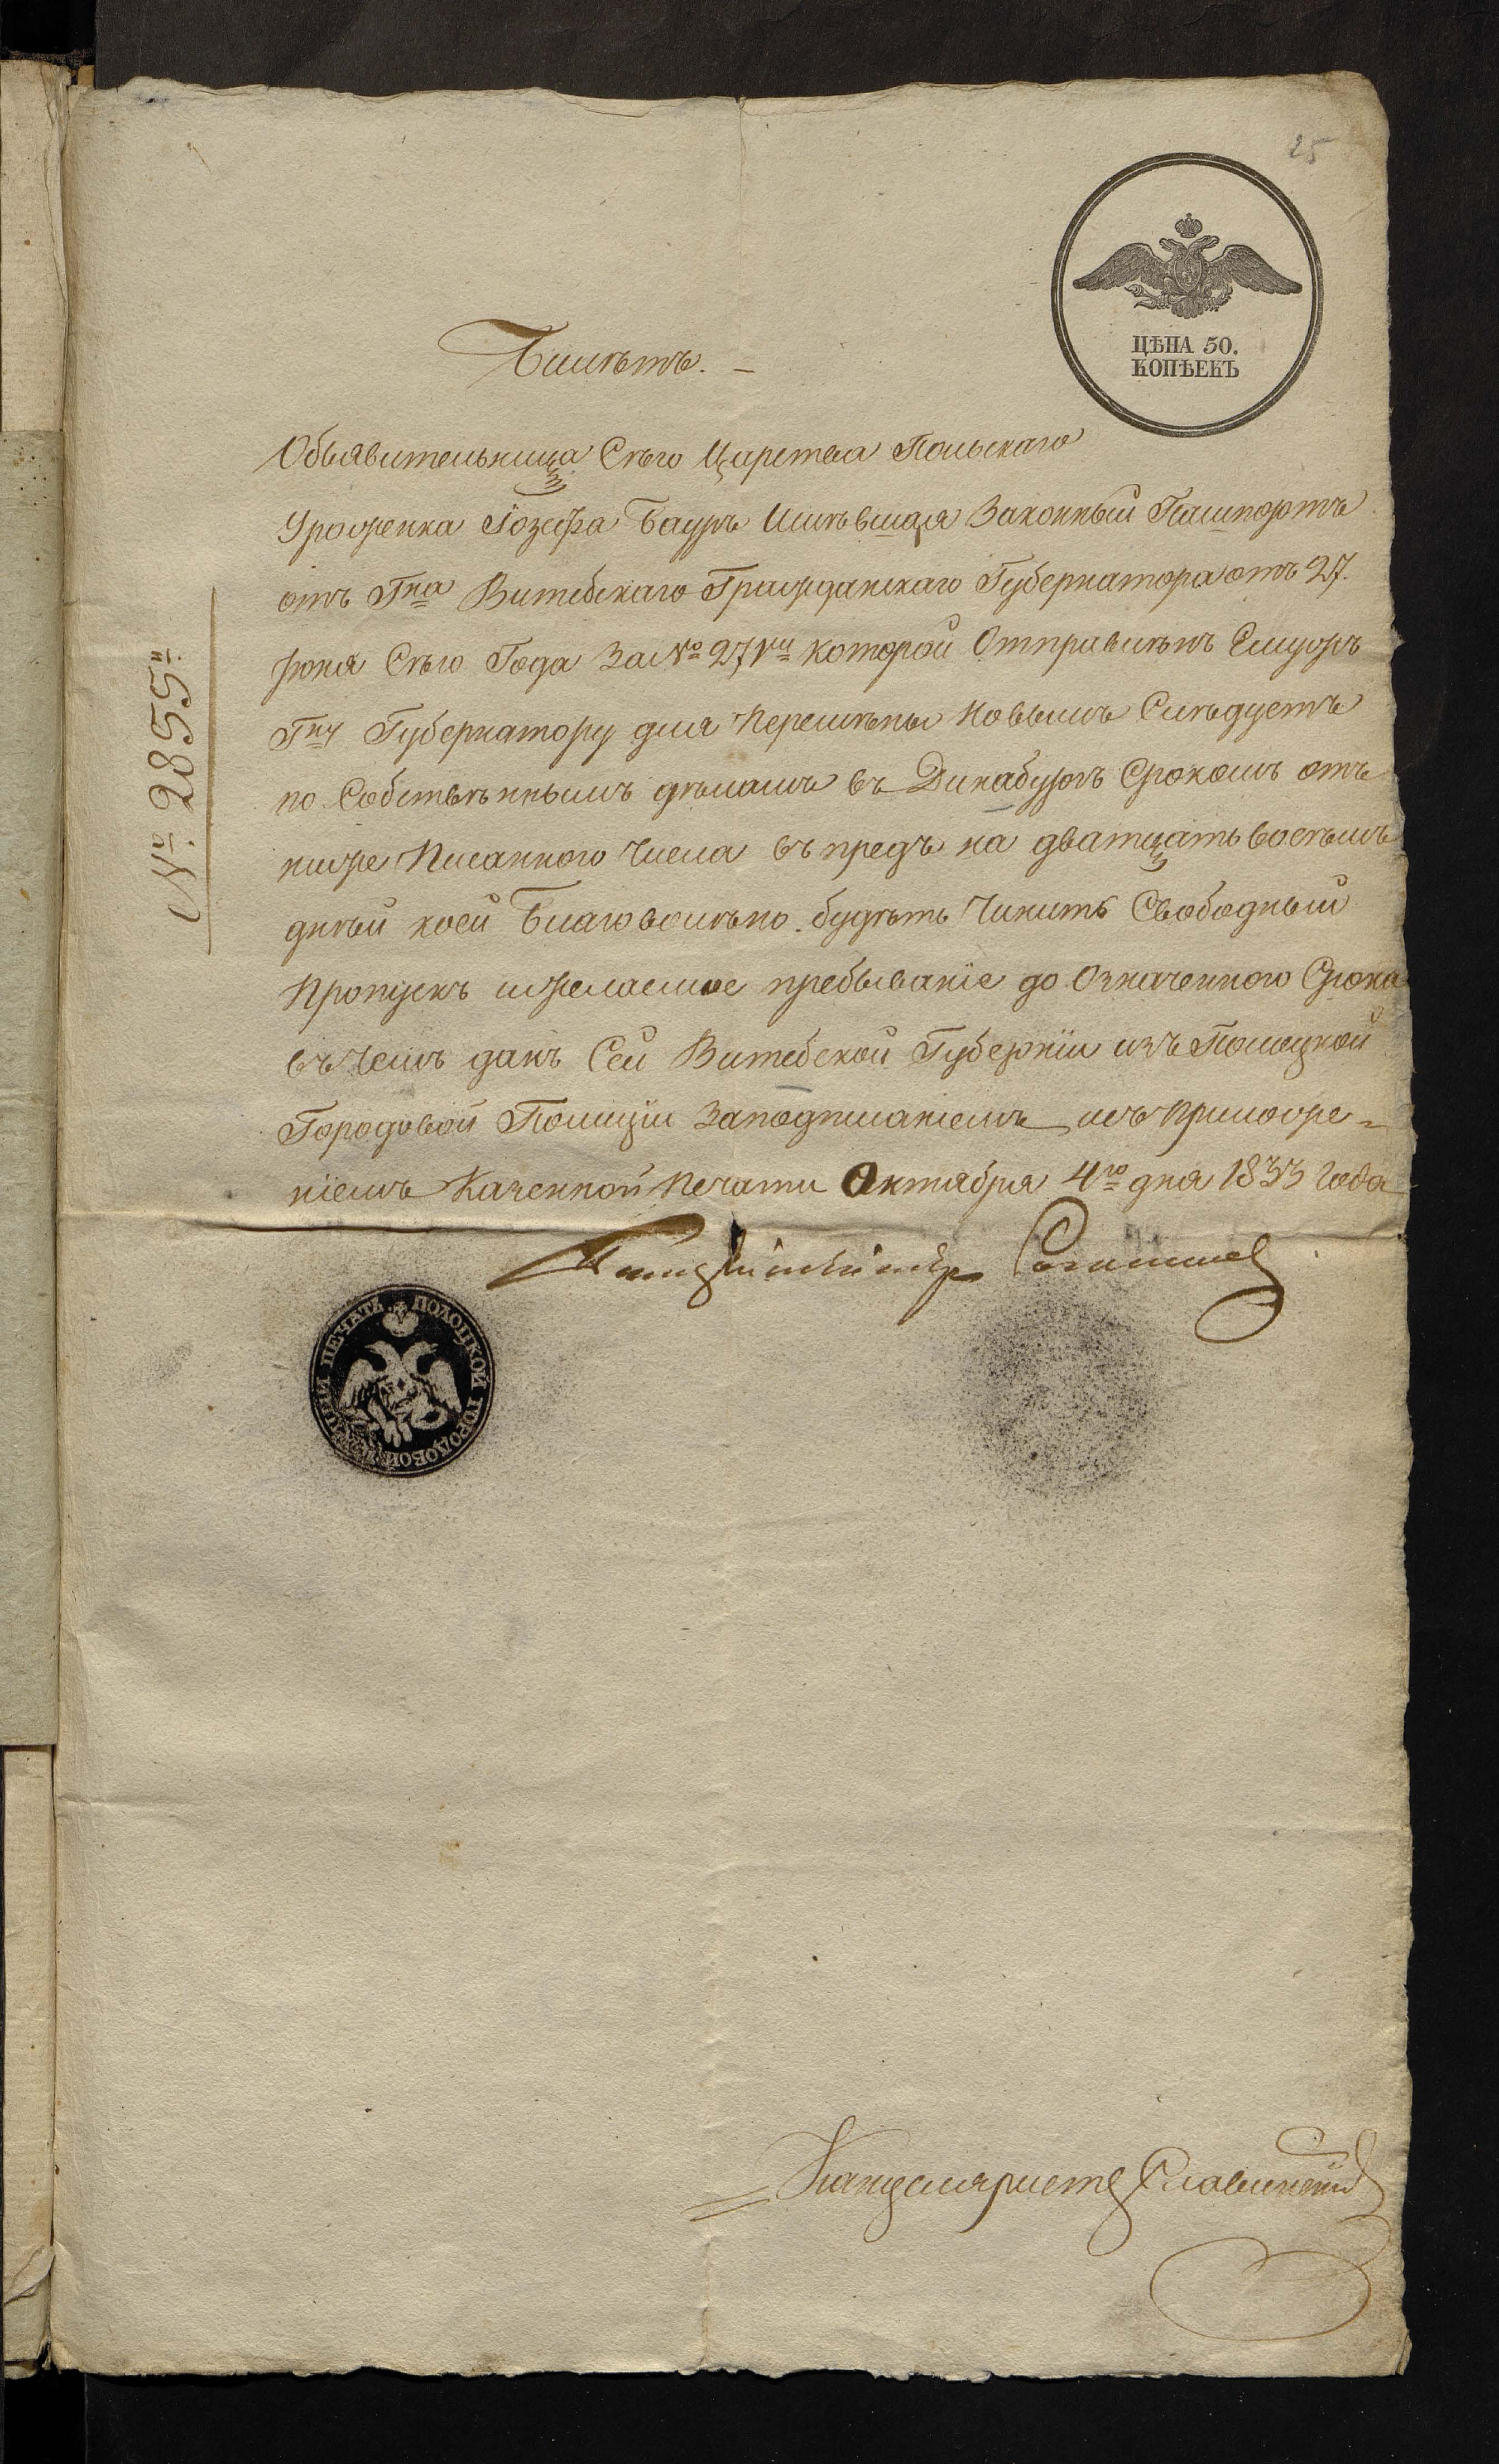 25
ЦѢНА 50.
КОПѢЕКЪ
Билѣтъ. —
Объявительница Сѣго Царства Польскаго
Уроженка Іозефа Бауръ Имѣвшая Законный Пашпортъ
отъ Гна Витебскаго Гражданскаго Губернатора отъ 27.
Сѣго Года За № 27 которой Отправилѣнъ Емужъ
Гну Губернатору для Перемѣны Новымъ Слѣдуетъ
по Собствѣннымъ дѣламъ въ Динабургъ Срокомъ отъ
ниже Писанного Числа въ предъ на дватцать восѣмъ
днѣй коей Благоволѣно будѣтъ Чинить Свободный
Пропускъ ижелаемое пребываніе до Означенного Срока
въ Чемъ данъ Сей Витебской Губерніи изъ Полоцкой
Городовой Полиціи Заподписаніемъ исъ Приложе=
ніемъ Казенной Печати Октября 4го дня 1833 Года
Полицмейстеръ
№ 2855й
ПЕЧАТЬ ПОЛОЦКОЙ ГОРОДОВОЙ ПОЛИЦІИ
Канцеляристъ Славинскій